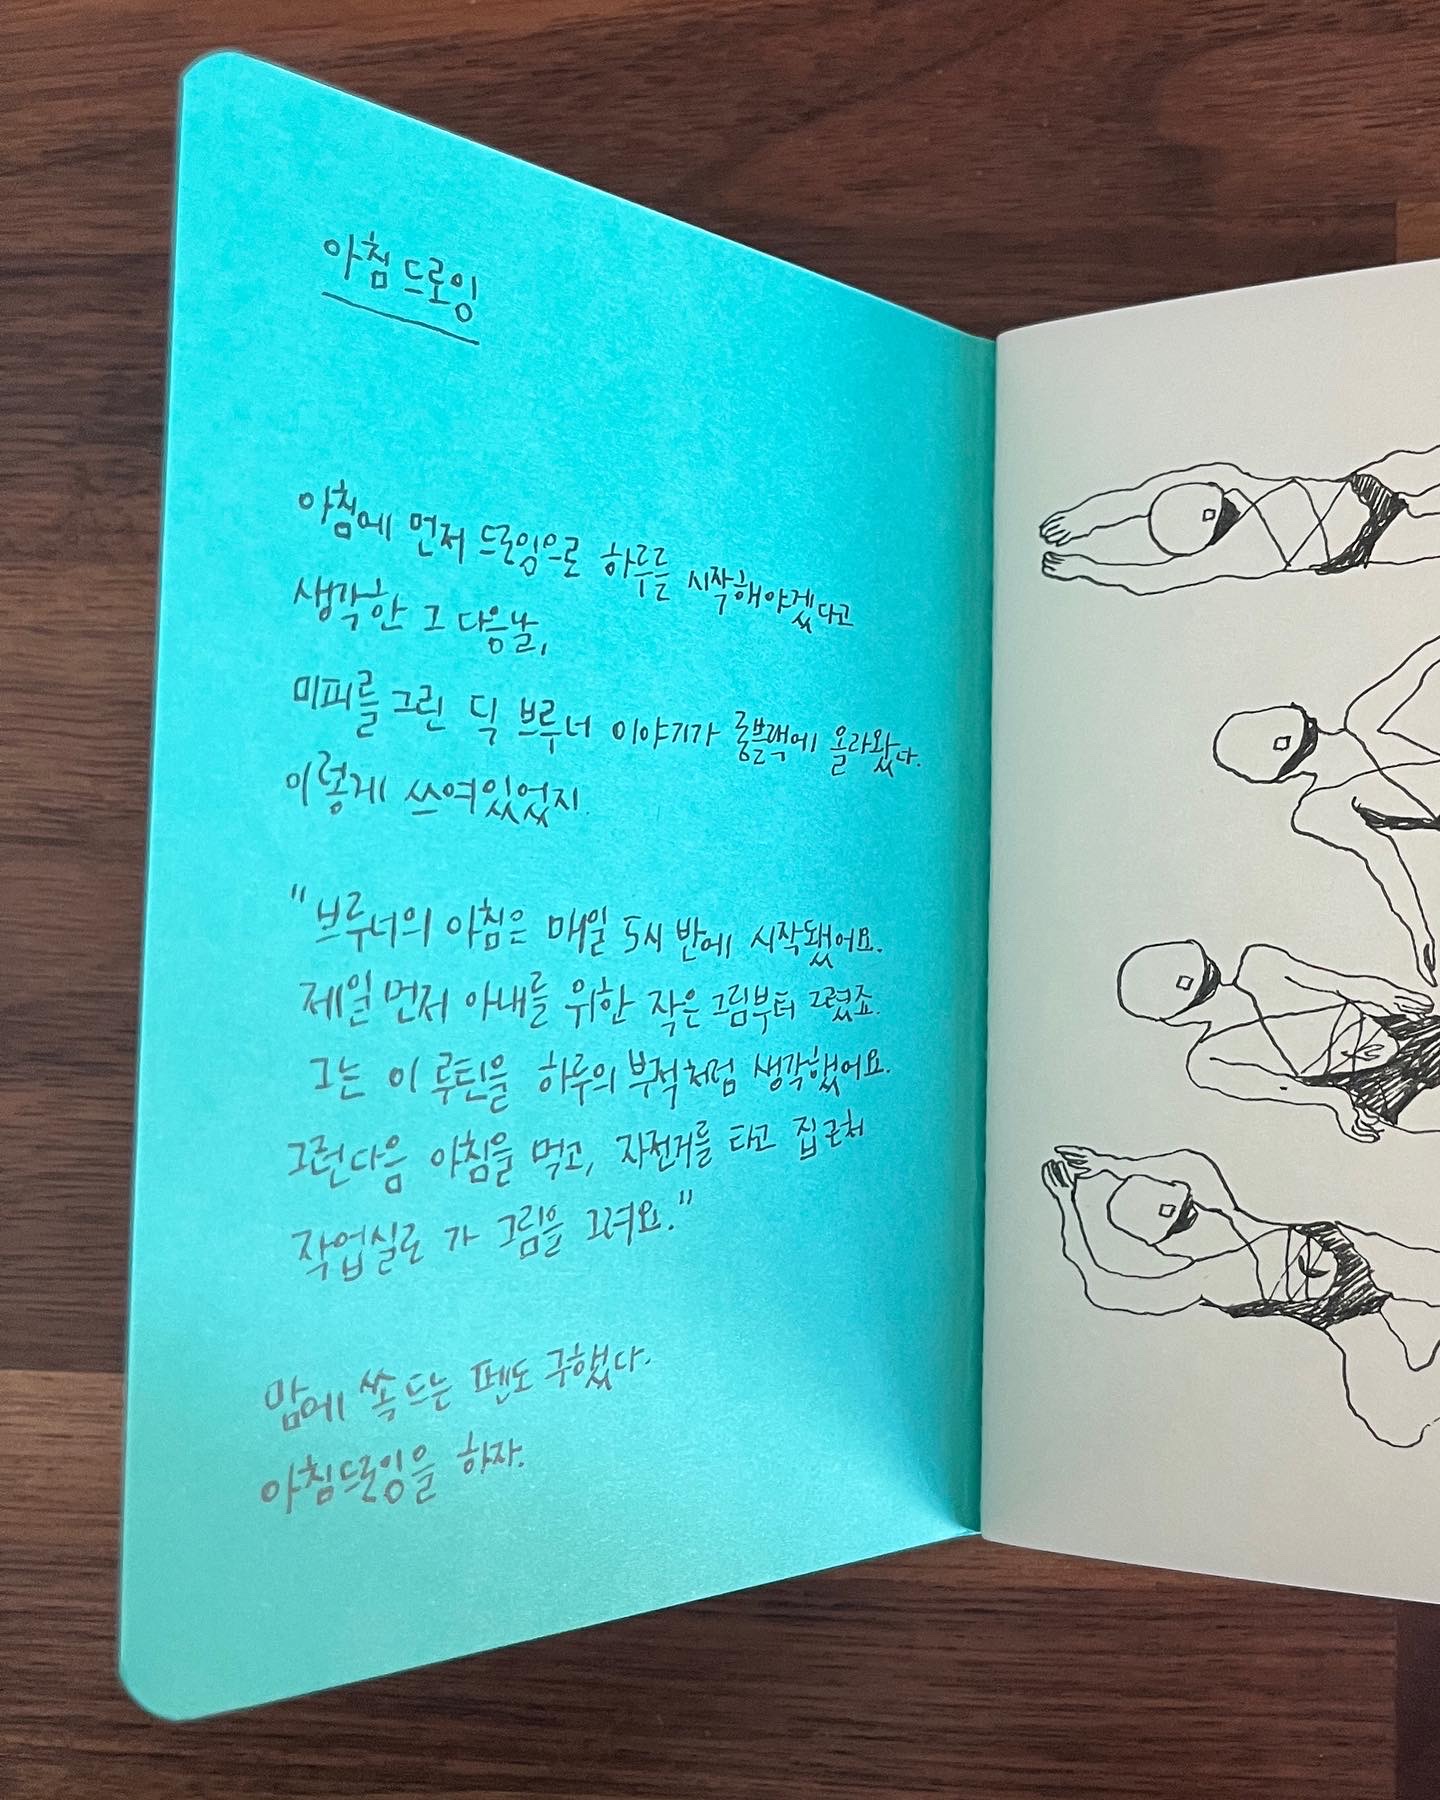 아침 드로잉
아침에 먼저 드로잉으로 하루를 시작해야겠다고
생각한 그 다음날,
미피를 그린 딕 브루너 이야기가 롱블랙에 올라왔다.
이렇게 쓰여있었지.
"브루너의 아침은 매일 5시 반에 시작됐어요.
제일 먼저 아내를 위한 작은 그림부터 그렸죠.
그는 이 루틴을 하루의 부적처럼 생각했어요.
그런다음 아침을 먹고, 자전거를 타고 집 근처
작업실로 가 그림을 그려요."
맘에 쏙 드는 펜도 구했다.
아침드로잉을 하자.